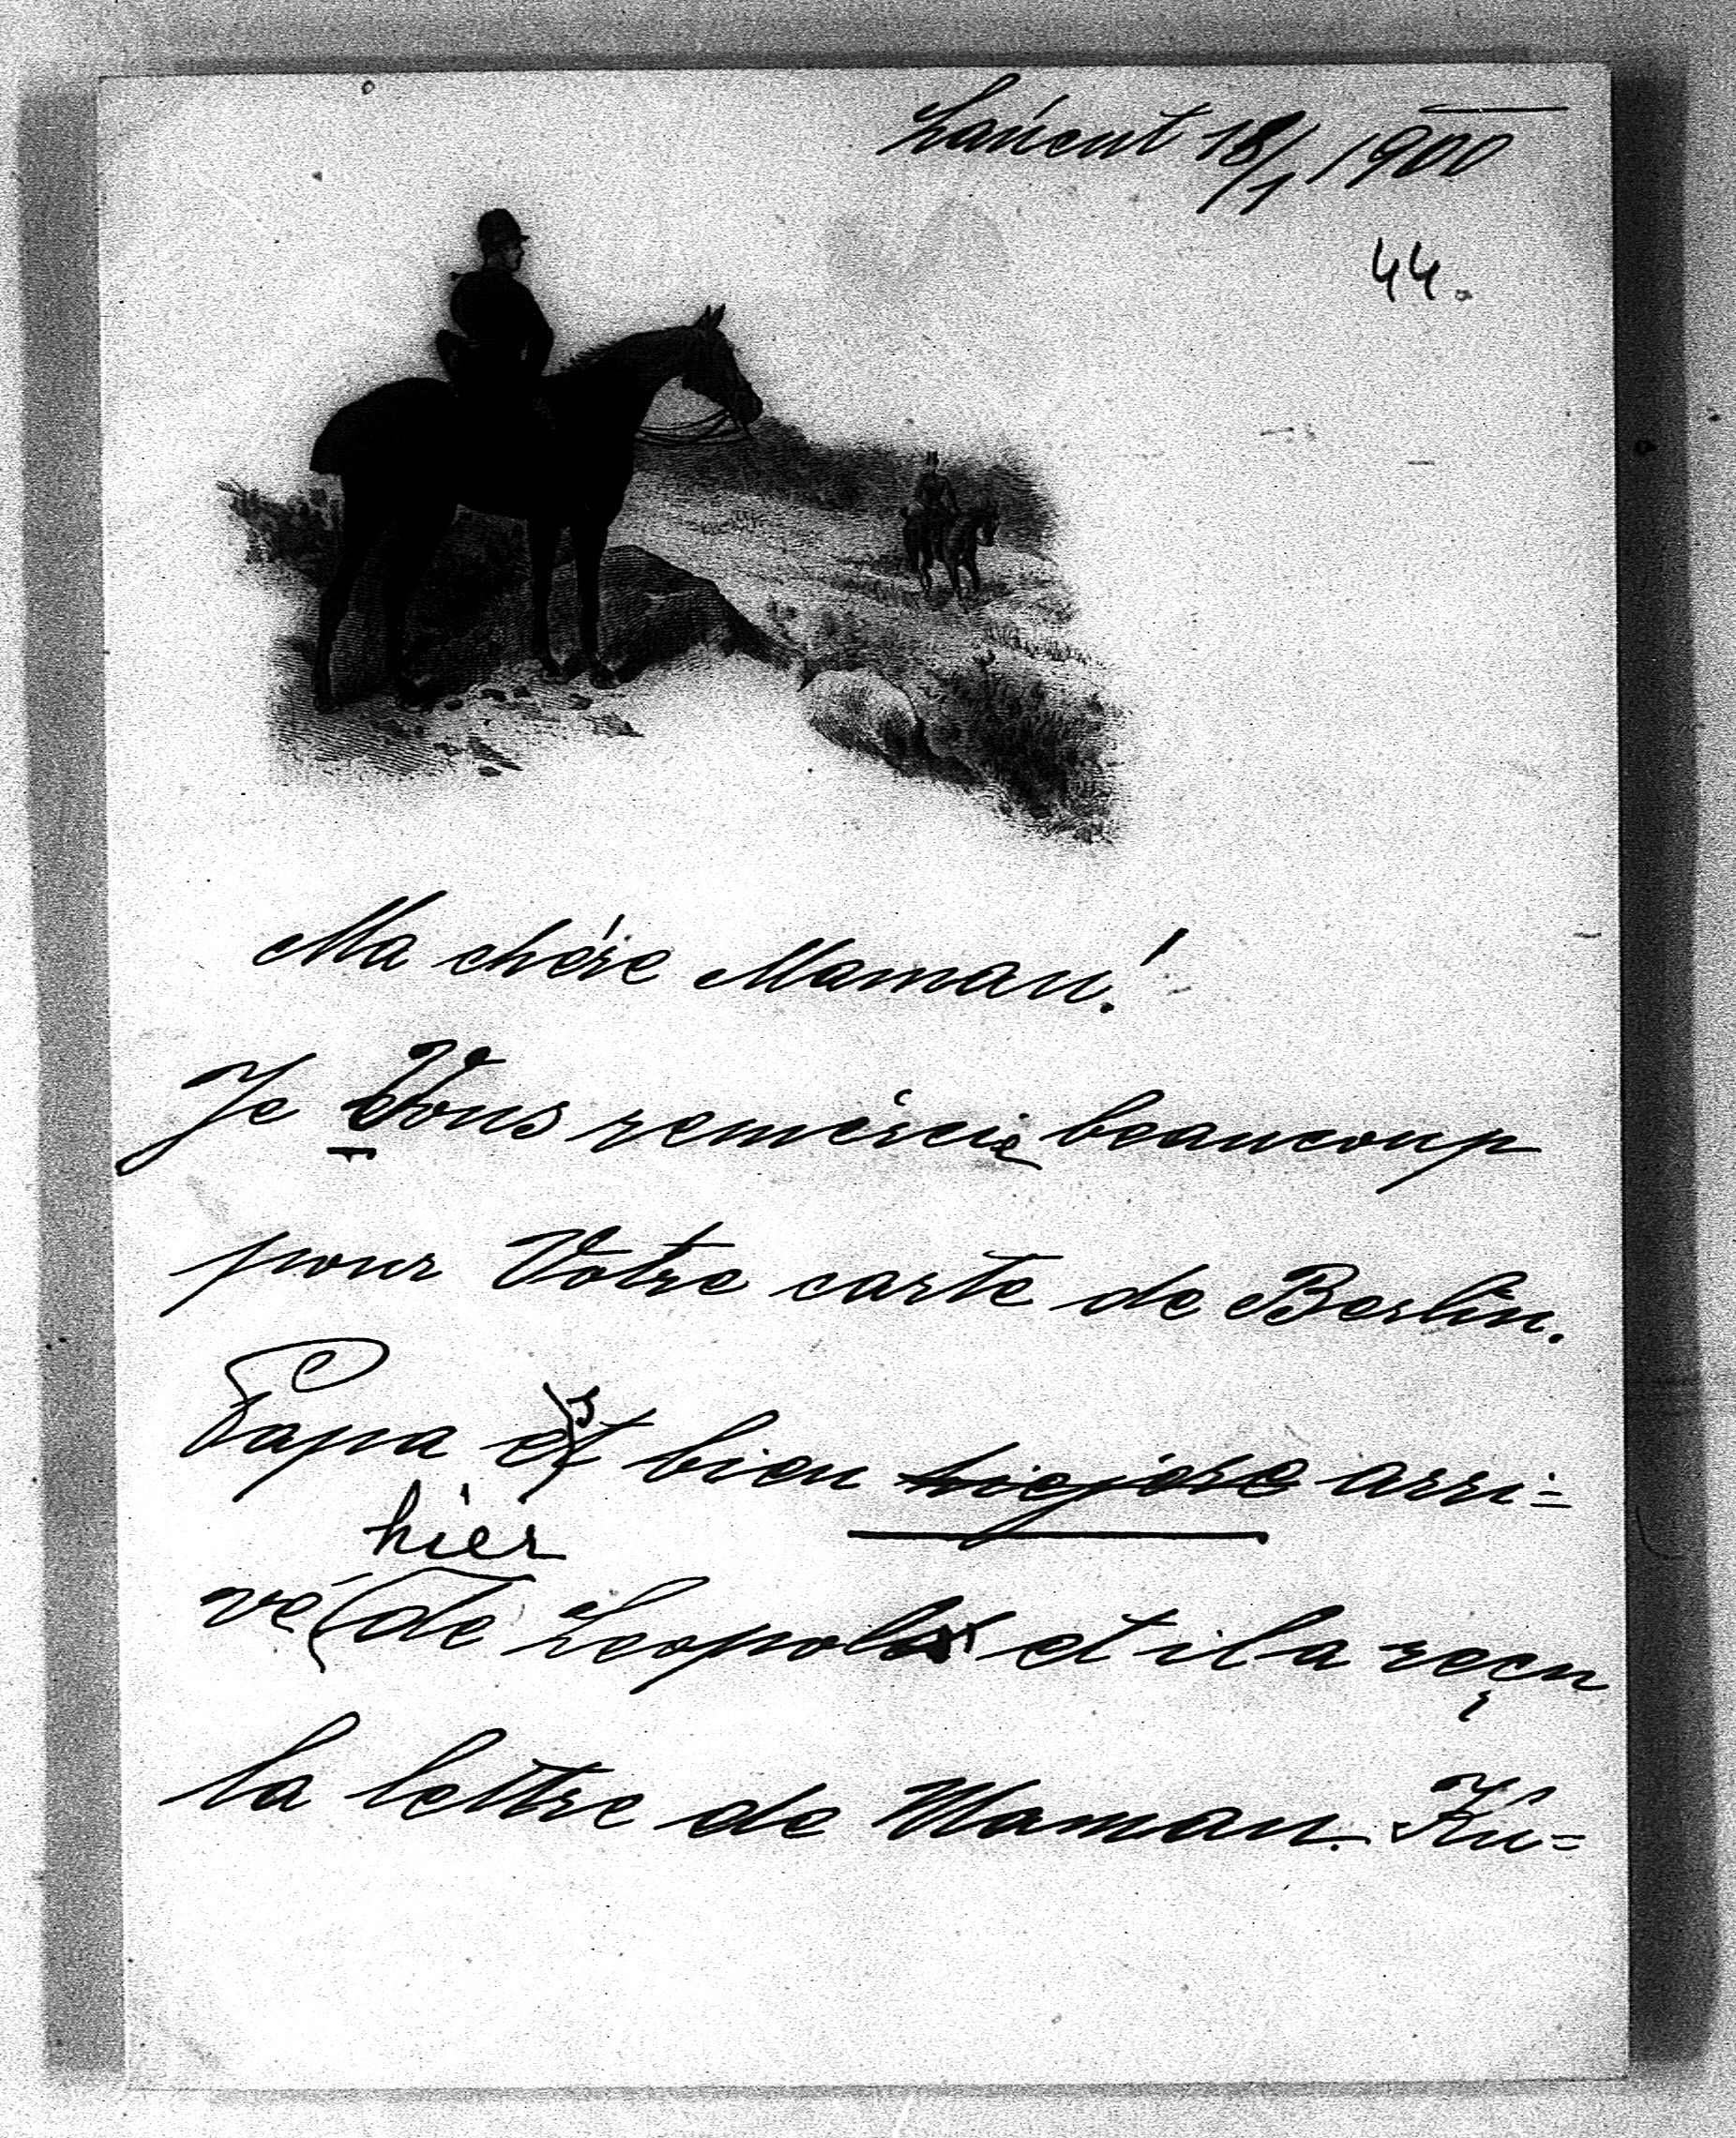 Łańcut 18/1 1900
44.
Ma chére Maman!
Je Vous remércie beaucoup
pour Votre carte de Berlin.
Papa est bien arri=
hier
vé de Leopol et il a reçu
la lettre de Maman. Ku=